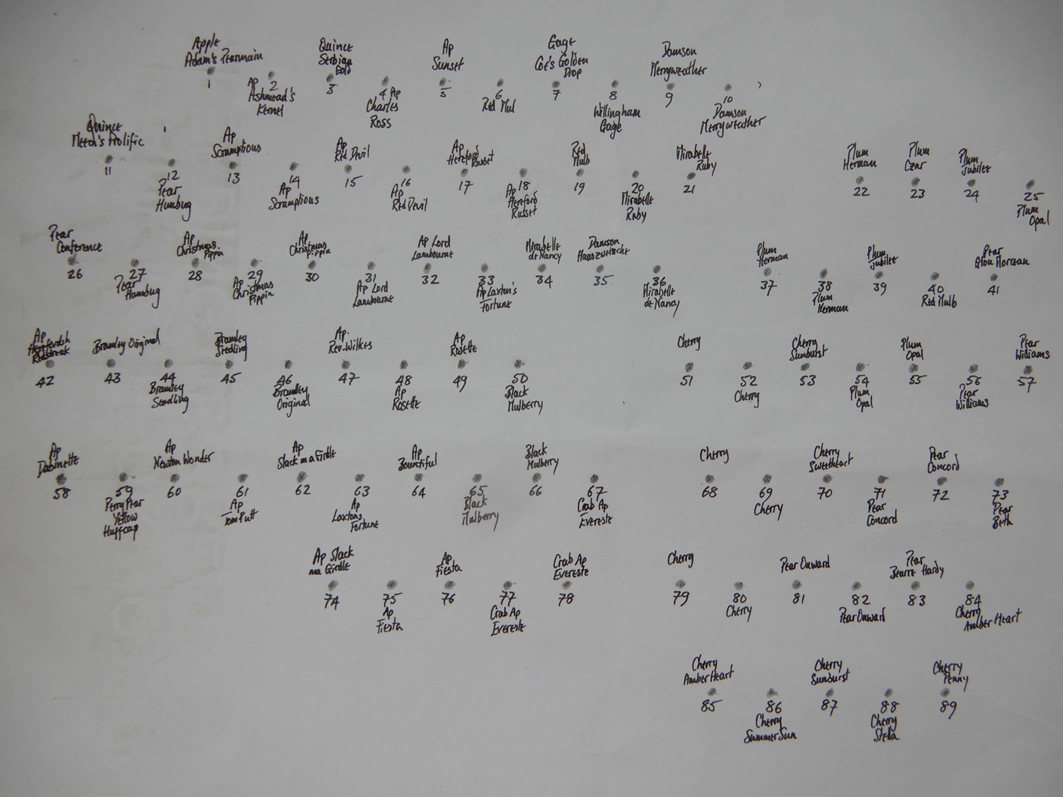 Apple
Adam's Pearmain
1
Ap
2
Ashmead's
Kernel
Quince
Serbian
Gold
3
4 Ap
Charles
Ross
Ap
Sunset
5
6
Red Mul
Gage
Coe's Golden
Drop
7
8
Willingham
Gage
Damson
Merryweather
9
10
Damson
Merryweather
Quince
Meech's Prolific
11
12
Pear
Humbug
Ap
Scrumptious
13
14
Ap
Scrumptious
Ap
Red Devil
15
16
Ap
Red Devil
Ap
Hereford
Russet
17
Ap 18
Hereford
Russet
Red
Mulb
19
20
Mirabelle
Ruby
Mirabelle
Ruby
21
Plum
Herman
22
Plum
Czar
23
Plum
Jubilee
24
25
Plum
Opal
Pear
Conference
26
27
Pear
Humbug
Ap
Christmas
Pippin
28
29
Ap
Christmas
Pippin
Ap
Christmas
Pippin
30
31
Ap Lord
Lambourne
Ap Lord
Lambourne
32
33
Ap Laxton's
Fortune
Mirabelle
de Nancy
34
Damson
35
36
Mirabelle
de Nancy
Plum
Herman
37
38
Plum
Herman
Plum
Jubilee
39
40
Red Mulb
Pear
Glou Morceau
41
Ap
Herefordsh
Redstreak
42
Bramley Original
43
44
Bramley
Seedling
Bramley
Seedling
45
46
Bramley
Original
Ap.
Rev. Wilkes
47
48
Ap
Rosette
Ap
Rosette
49
50
Black
Mulberry
Cherry
51
52
Cherry
Cherry
Sunburst
53
54
Plum
Opal
Plum
Opal
55
56
Pear
Williams
Pear
Williams
57
Ap
Dabinette
58
59
Perry Pear
Yellow
Huffcap
Ap
Newton Wonder
60
61
Ap
Tom Putt
Ap
Slack ma Girdle
62
63
Ap
Laxtons
Fortune
Ap
Bountiful
64
65
Black
Mulberry
Black
Mulberry
66
67
Crab Ap
Evereste
Cherry
68
69
Cherry
Cherry
Sweetheart
70
71
Pear
Concord
Pear
Concord
72
73
Pear
Beth
Ap Slack
ma Girdle
74
75
Ap
Fiesta
Ap
Fiesta
76
77
Crab Ap
Evereste
Crab Ap
Evereste
78
Cherry
79
80
Cherry
Pear Onward
81
82
Pear Onward
Pear
Beurre Hardy
83
84
Cherry
Amber Heart
Cherry
Amber Heart
85
86
Cherry
Summer Sun
Cherry
Sunburst
87
88
Cherry
Stella
Cherry
Penny
89